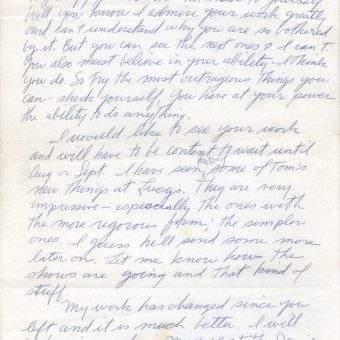 Well, you know I admire your work greatly
and can't understand why you are so bothered
by it. But you can see the next ones & I can't.
You also must believe in your ability—I think
you do. So try the most outrageous things you
can—shock yourself. You have at your power
the ability to do anything.
I would like to see your work
and will have to be content to wait until
Aug or Sept. I have seen photos of some of Tom's
new things at Lucy's. They are very
impressive—especially the ones with
the more rigorous form; the simpler
ones. I guess he'll send some more
later on. Let me know how the
shows are going and that kind of
stuff.
My work has changed since you
left and it is much better. I will